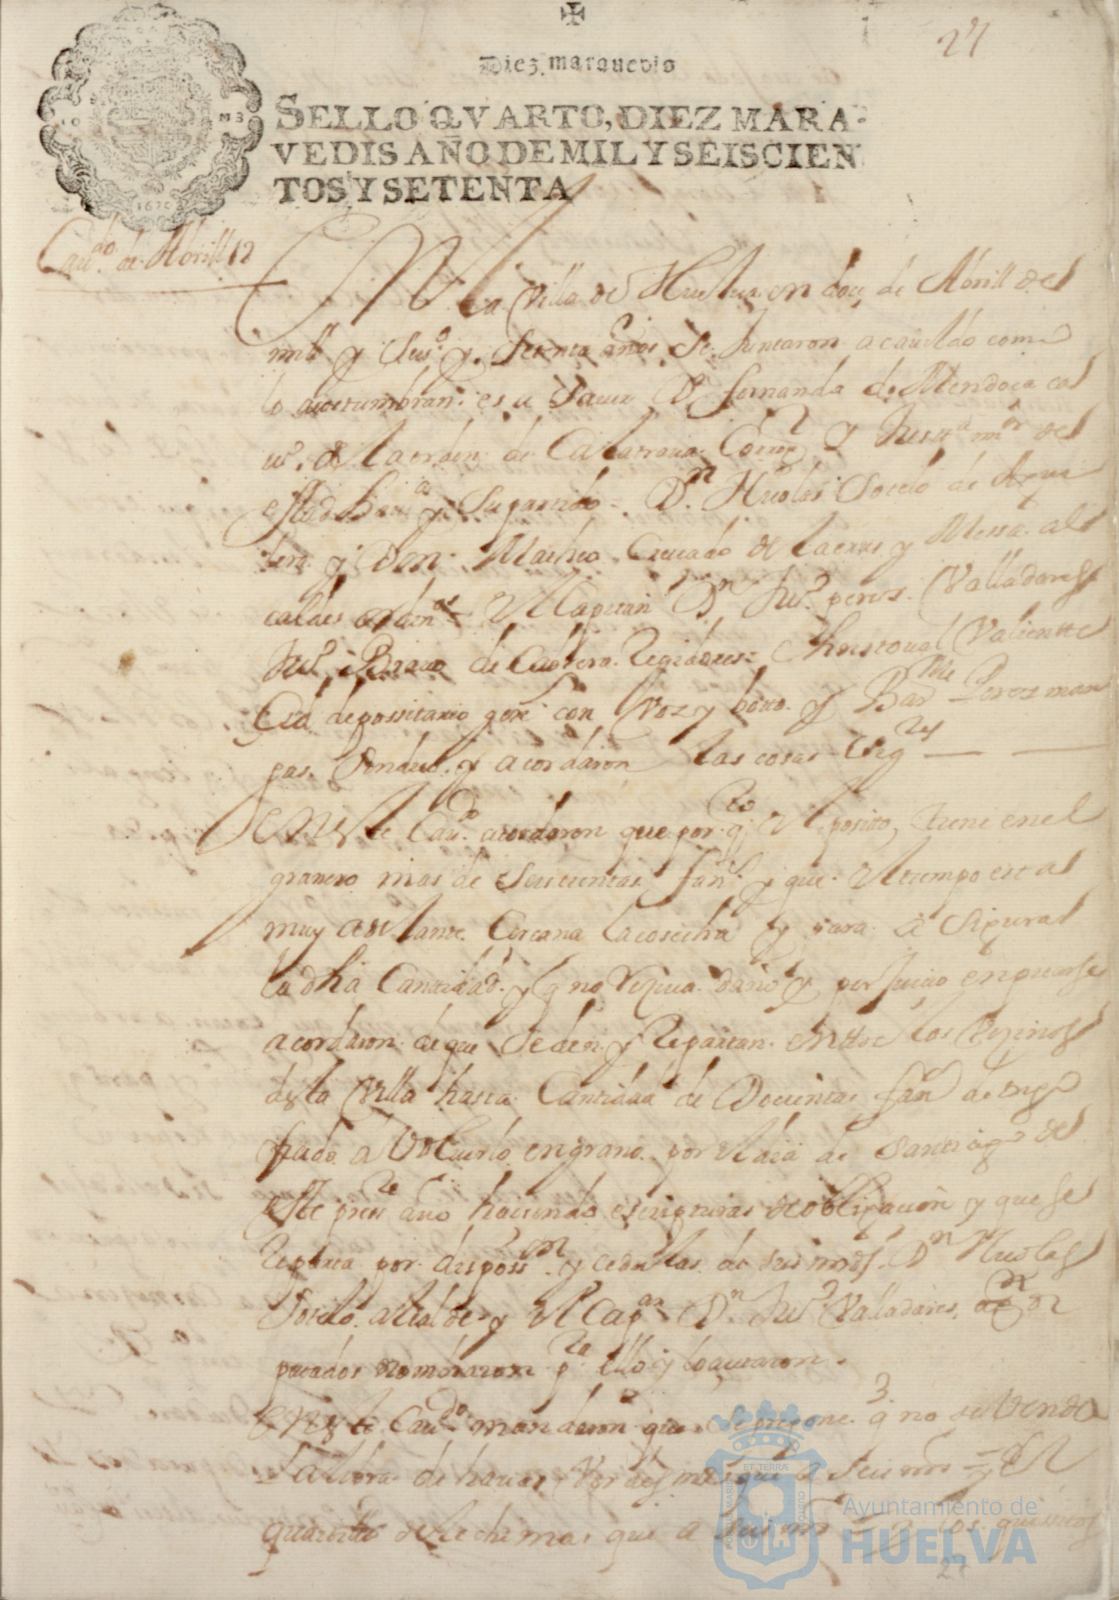 27
Diez marauedis
SELLO QVARTO, DIEZ MARA-
VEDIS AÑO DE MIL Y SEISCIEN
TOS Y SETENTA
1670
Caudo de Abrill 12
EN la Villa de Huelua en doce de Abrill de
mill y seiso y setenta años se Juntaron a cauildo como
lo acostumbran es a sauer D. fernando de Mendoça ca
uo de la orden de Calatraua Corregr y Justa mor de
estado y su partido = Dn Nicolas Sotelo de
y Don Matheo Cruçado de la cruz y Messa al
caldes ordinos = El Capitan Dn Juo perez Valladares
Juo Brauo de Cabrera Regidores = Christoual Valiente
Cid depossitario genl con Voz y boto y Barme Perez man
gas Sindico y acordaron las cosas sigtes
EN este Cauo acordaron que por qto el posito tiene en el
granero mas de seiscientas fans y que el tiempo esta
muy adelante Cercana la cosecha y
la dha Cantidad y q no Reciua daño y perjuicio
acordaron de que se den y Repartan entre los Vezinos
desta Villa hasta Cantidad de Docientas fans de trigo
fiado a Voluerlo en grano por el dia de Santiago de
este preste año haciendo escripturas de obligacion y que se
Reparta por disposson y cedulas de sus mrds Dn Nicolas
Sotelo alcalde y el Capan Dn Juo Valladares Ror di
putados nombraron pa ello y lo acetaron
EN este Cauo mandaron que se pregone q no se Venda
la libra de hauas Verdes mas que a seis mrs = y El
quartillo de leche mas que a seis mrs = y los quessos
Ayuntamiento de
HUELVA
27